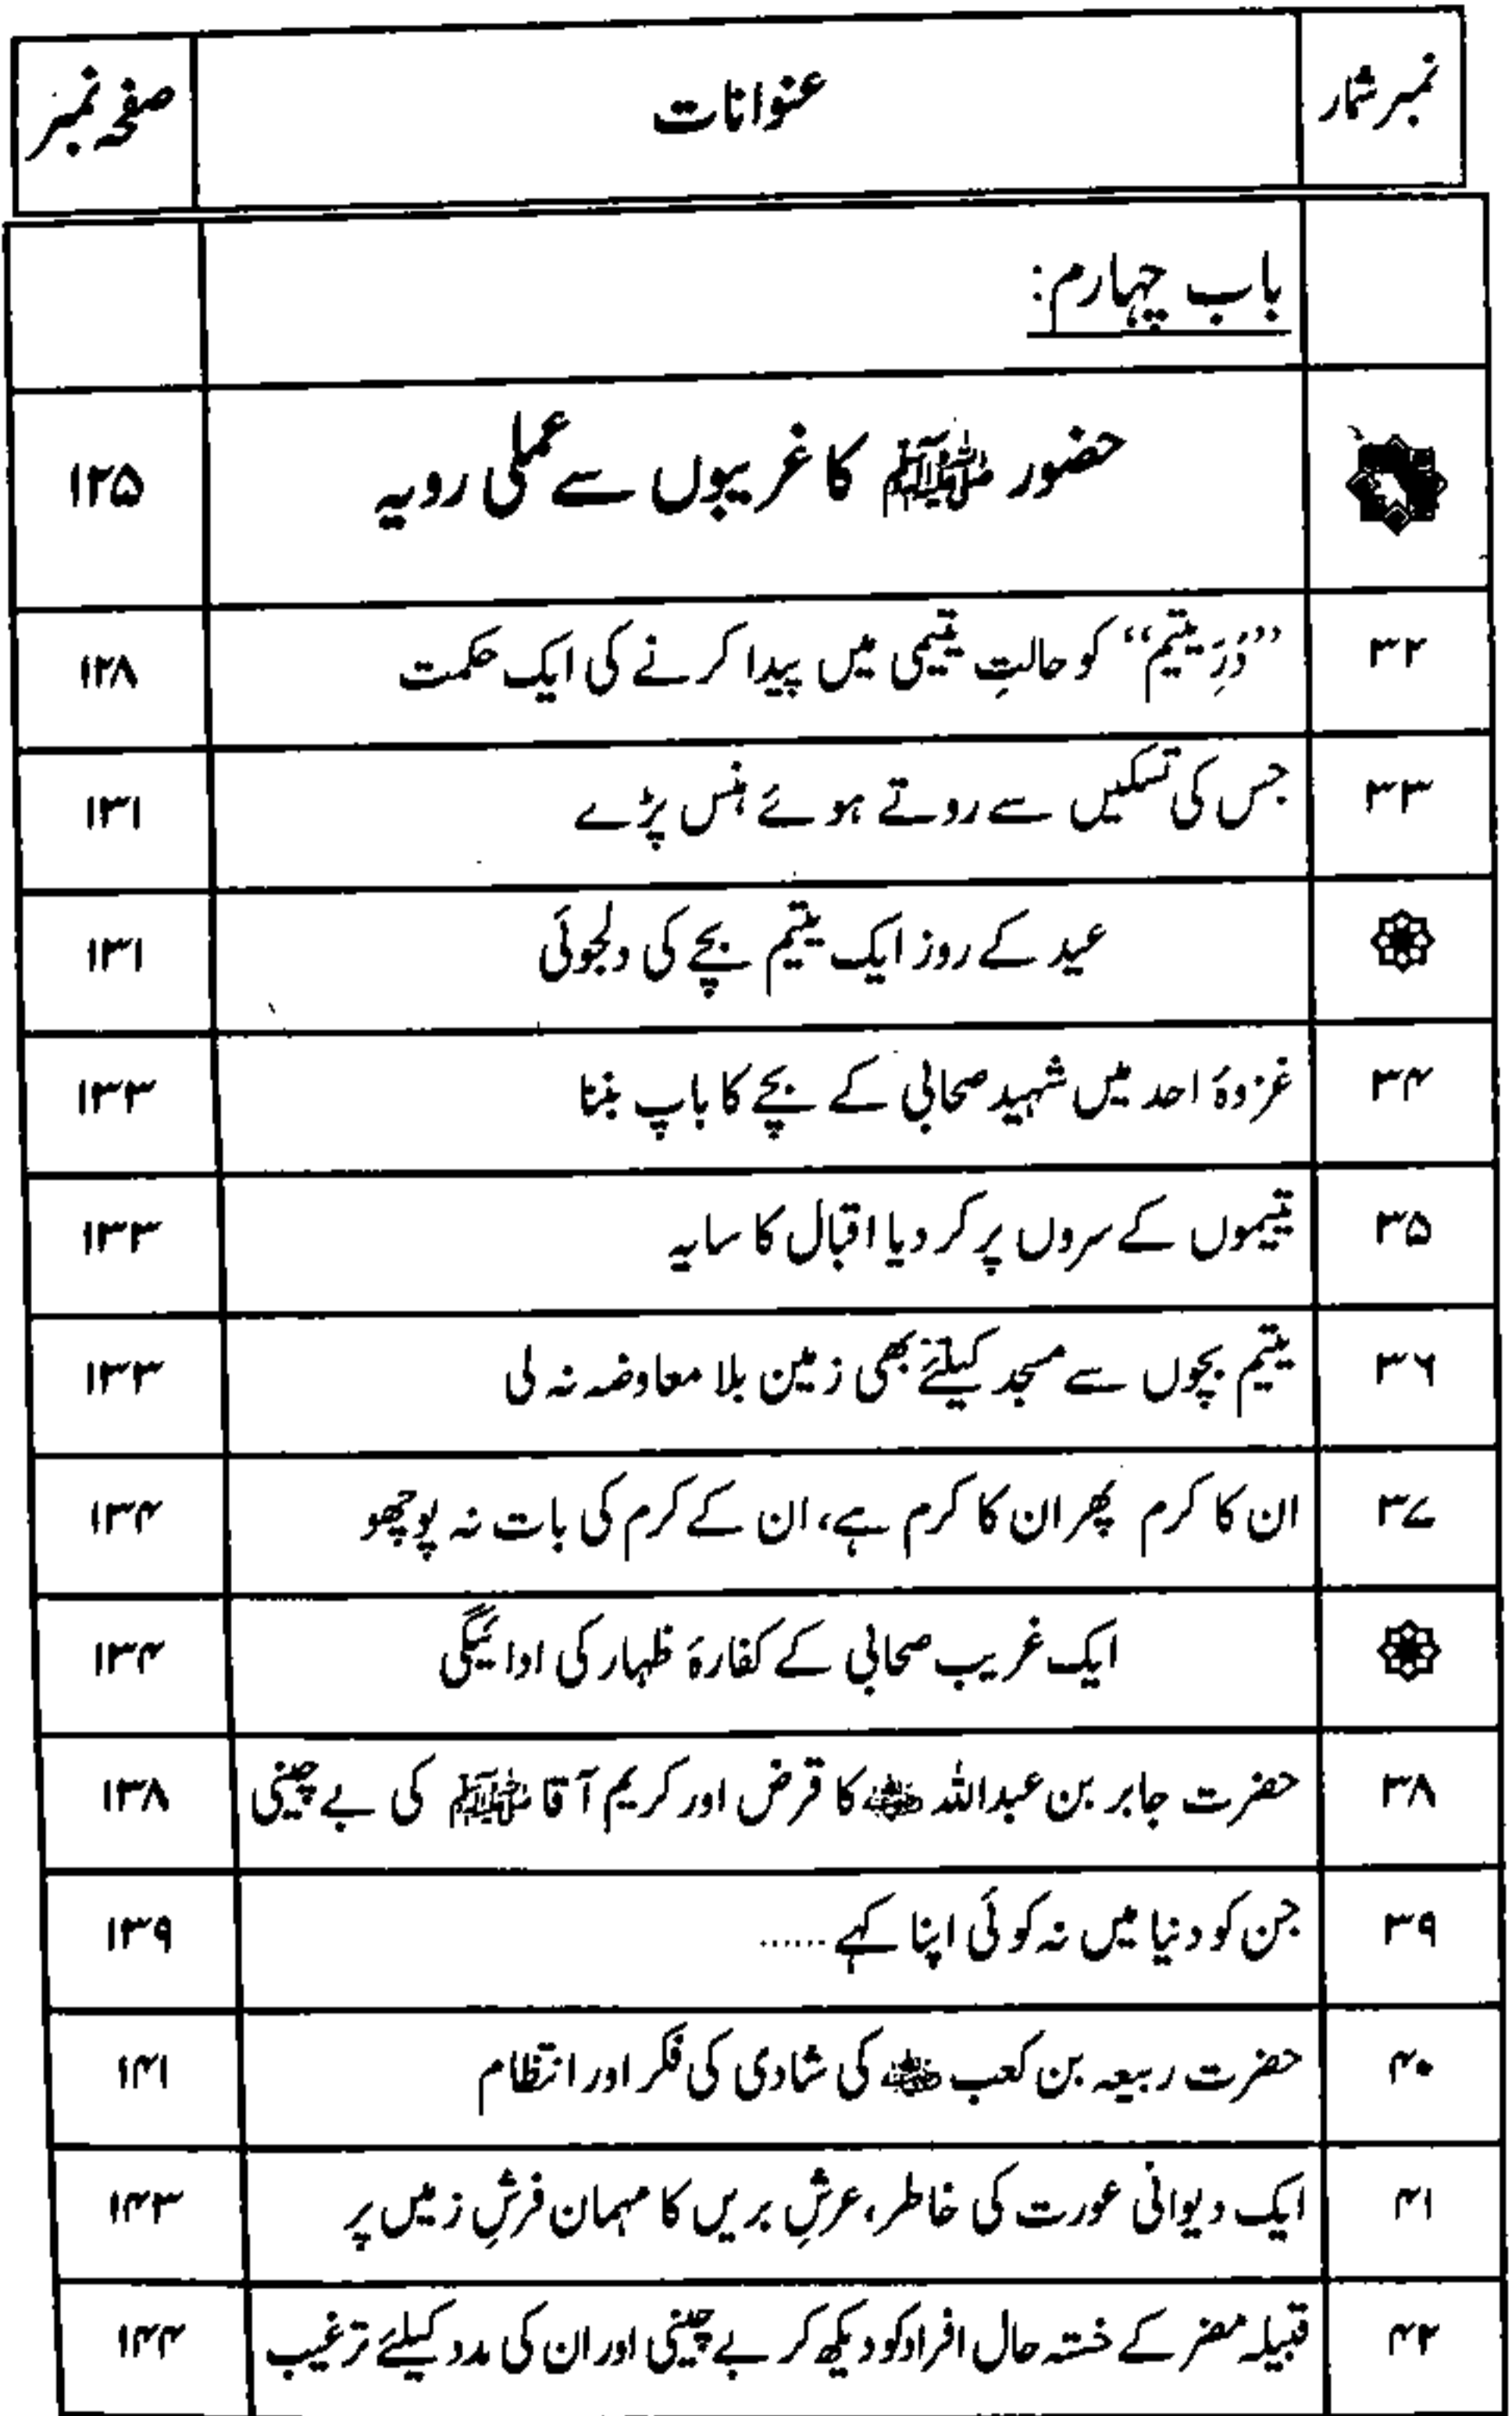 نمبر شمار	عنوانات	صفحہ نمبر
باب چہارم:
حضور ﷺ کا غریبوں سے عملی رویہ	۱۲۵
۳۲	’’دُرِّ یتیم‘‘ کو حالتِ یتیمی میں پیدا کرنے کی ایک حکمت	۱۲۸
۳۳	جس کی تسکیں سے روتے ہوئے ہنس پڑے	۱۳۱
عید کے روز ایک یتیم بچے کی دلجوئی	۱۳۱
۳۴	غزوۂ احد میں شہید صحابی کے بچے کا باپ بننا	۱۳۳
۳۵	یتیموں کے سروں پر کر دیا اقبال کا سایہ	۱۳۳
۳۶	یتیم بچوں سے مسجد کیلئے بھی زمین بلا معاوضہ نہ لی	۱۳۳
۳۷	ان کا کرم پھر ان کا کرم ہے، ان کے کرم کی بات نہ پوچھو	۱۳۴
ایک غریب صحابی کے کفارۂ ظہار کی ادائیگی	۱۳۴
۳۸	حضرت جابر بن عبداللہ ؓ کا قرض اور کریم آقا ﷺ کی بے چینی	۱۳۸
۳۹	جن کو دنیا میں نہ کوئی اپنا کہے ......	۱۳۹
۴۰	حضرت ربیعہ بن کعب ؓ کی شادی کی فکر اور انتظام	۱۴۱
۴۱	ایک دیوانی عورت کی خاطر، عرشِ بریں کا مہمان فرشِ زمیں پر	۱۴۳
۴۲	قبیلہ مضر کے خستہ حال افراد کو دیکھ کر بے چینی اور ان کی مدد کیلئے ترغیب	۱۴۴